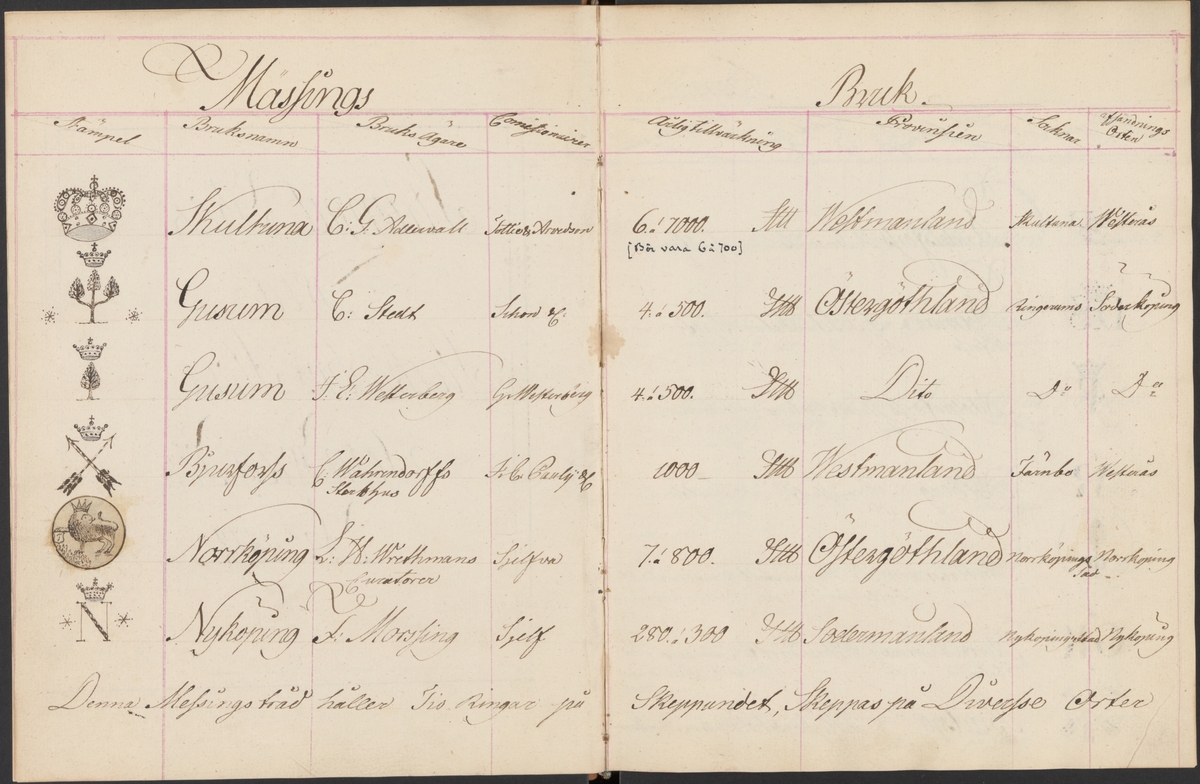 Mässings Bruk.
Stämpel Bruksnamn Bruks Ägare Comissionairer Årlig tillvärkning Provinsen Soknar Afsändnings Orten
Skultuna C: G. Adlerwall Tottie & Arvedson 6 à 7000. Sktt Westmanland Skultuna Westerås
[Bör vara 6 à 700]
Gusum C: Stedt Schön &C: 4 à 500. Sktt Östergöthland Ringerums Söderköping
Gusum J. E: Westerberg G: Westerberg 4 à 500. Sktt Dito Do Do
Bjurforss C. Wahrendorffs Sterbhus F. C. Pauly &C 1000 Sktt Westmanland Järnbo Westerås
Norrköping L: W: Wrethmans Curatorer Sjelfva 7 à 800. Sktt Östergöthland Norrköpings Stad Norrköping
N
Nyköping F: Morssing Sjelf 280 à 300 Sktt Södermanland Nyköpings stad Nyköping
Denna Messings tråd håller Tio Ringar på Skeppundet, Skeppas på Diversse Orter